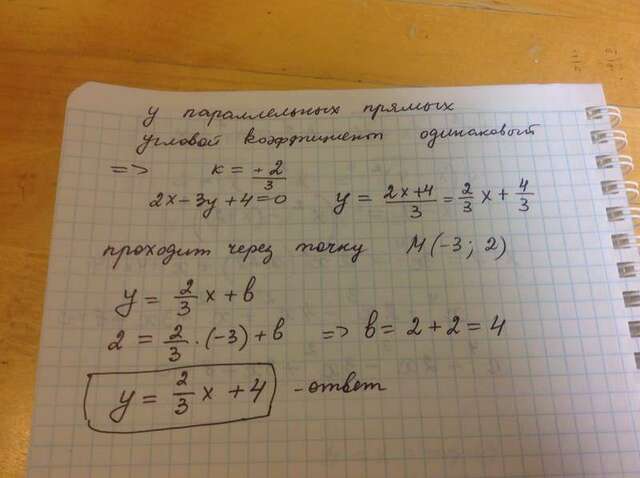 у параллельных прямых
угловой коэффициент одинаковый
=> к = +2/3
2x-3y+4=0 y = 2x+4/3 = 2/3 x + 4/3
проходит через точку M(-3; 2)
y = 2/3 x + b
2 = 2/3 · (-3) + b => b = 2 + 2 = 4
y = 2/3 x + 4 - ответ